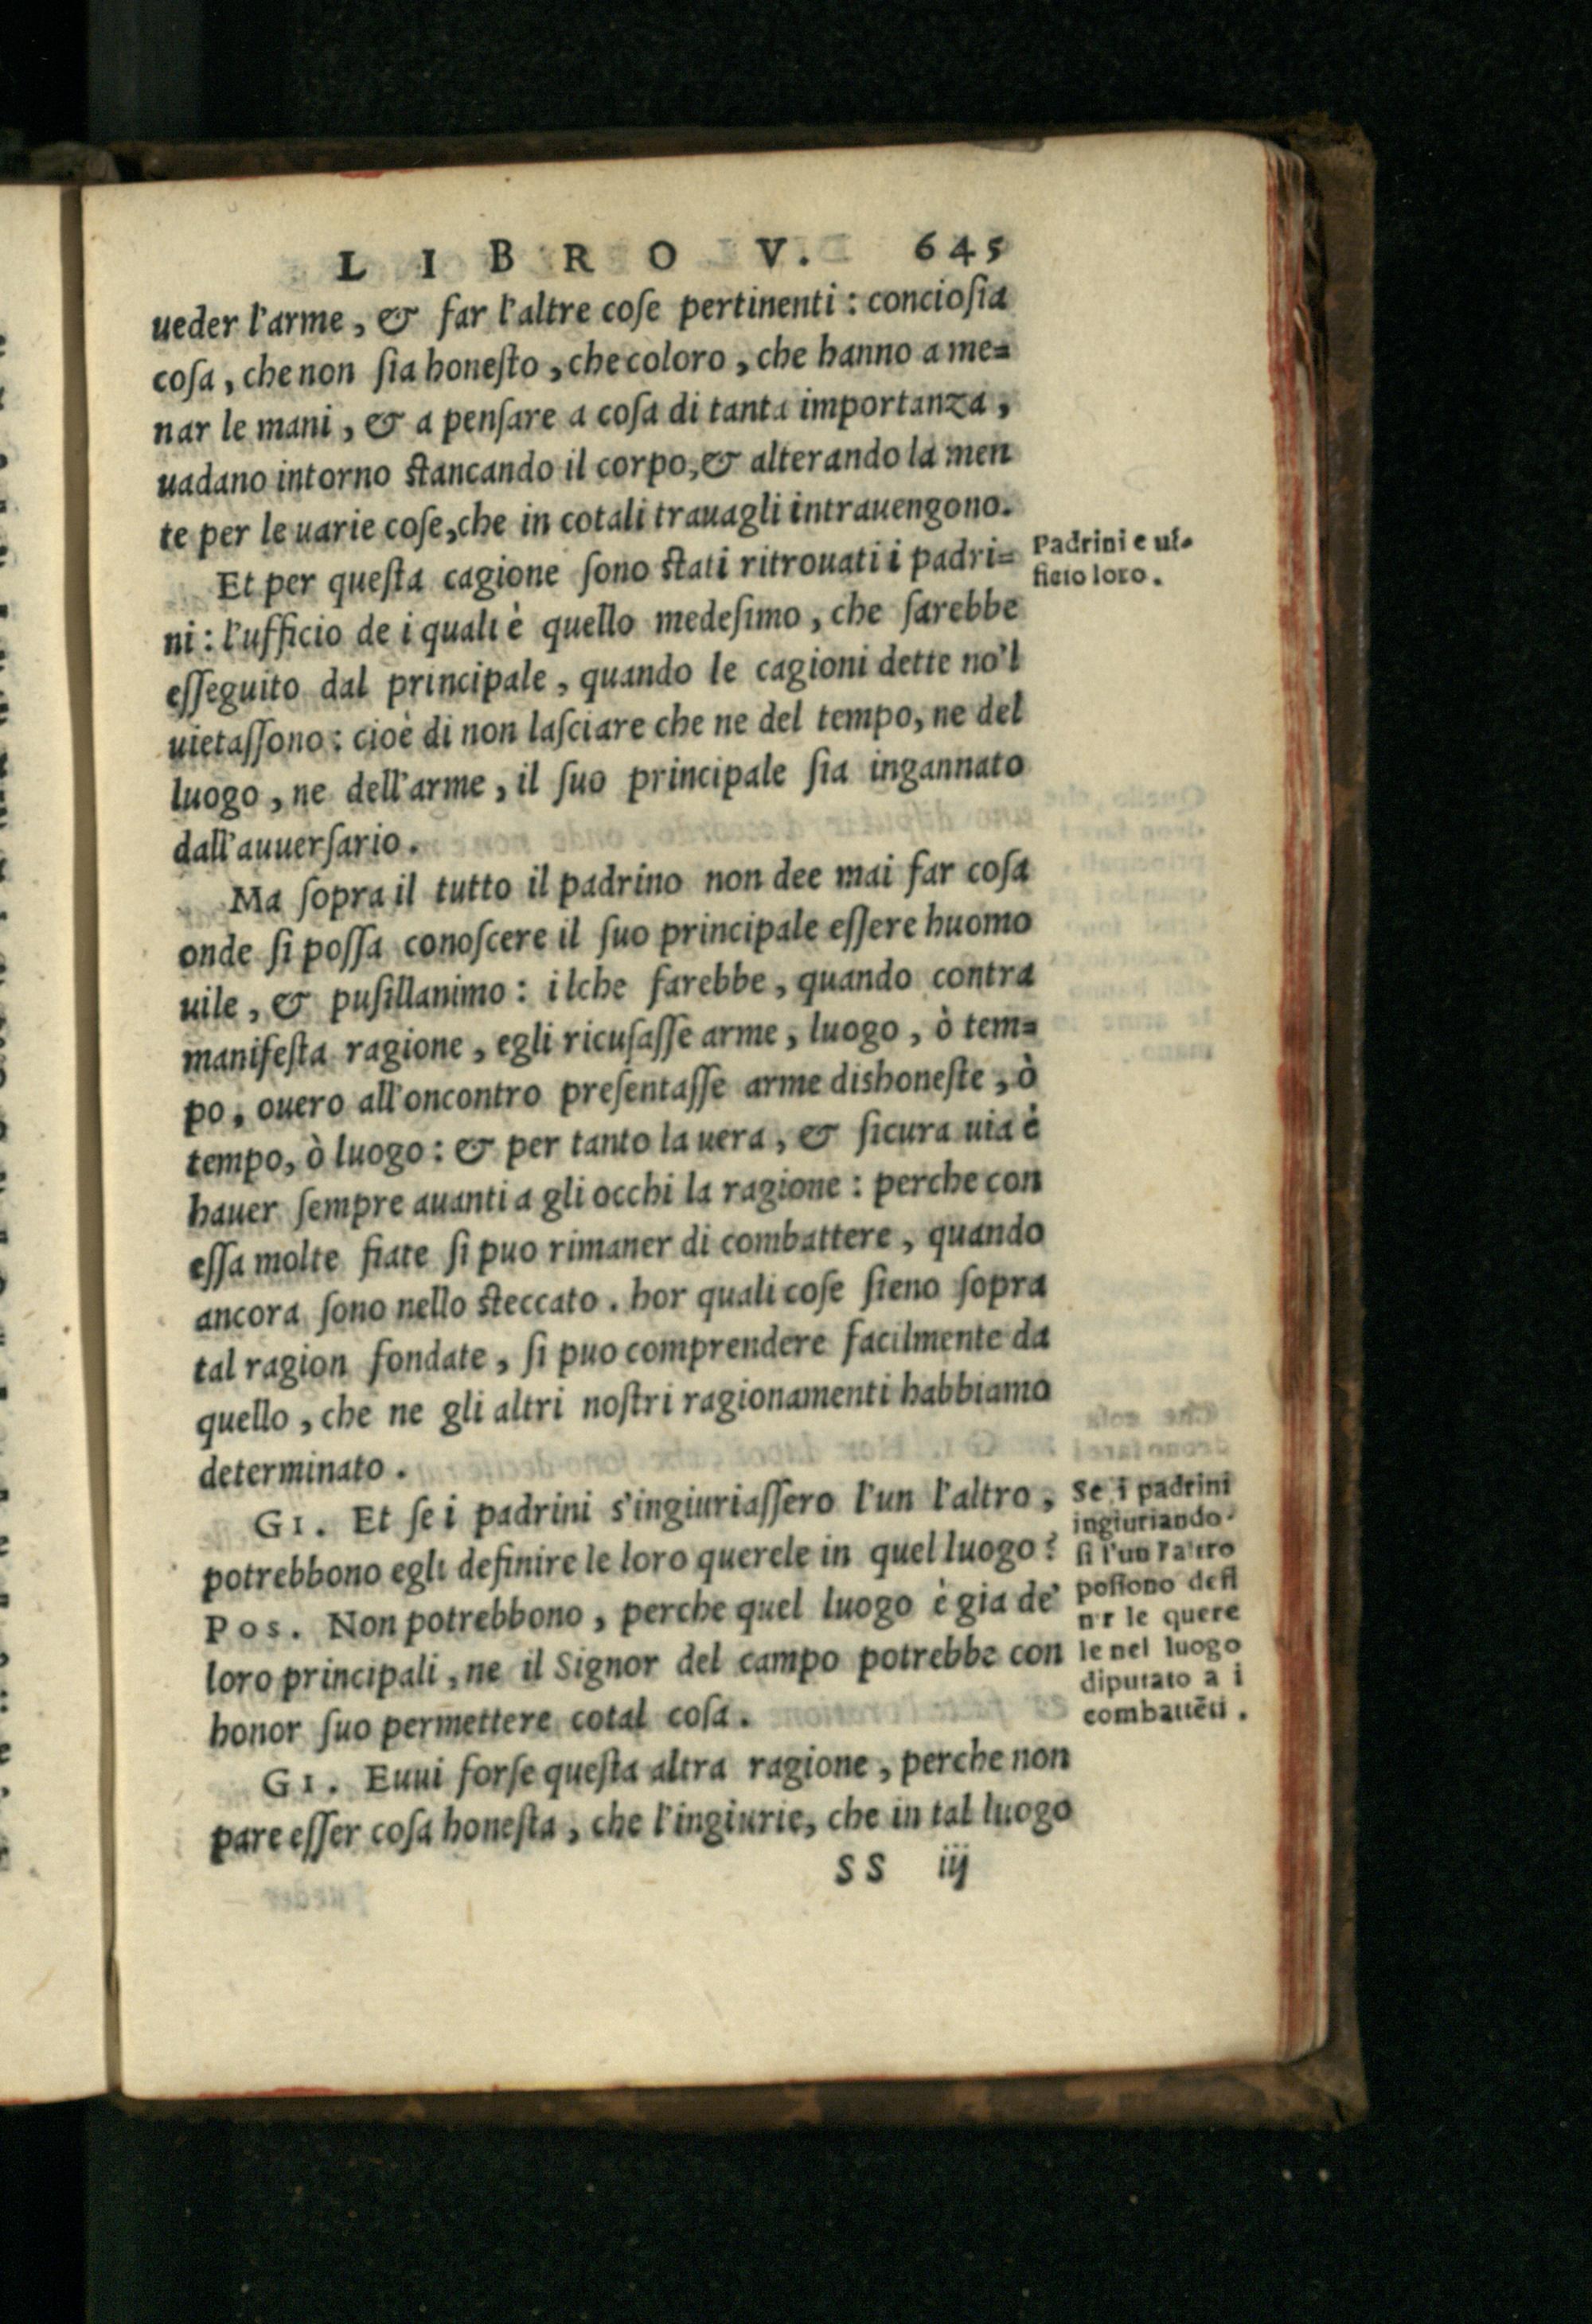 LIBRO V. 645
ueder l'arme, & far l'altre coſe pertinenti: concioſia
coſa, che non ſia honeſto, che coloro, che hanno a me=
nar le mani, & a penſare a coſa di tanta importanza,
uadano intorno ſtancando il corpo, & alterando la men
te per le uarie coſe, che in cotali trauagli intrauengono.
Et per queſta cagione ſono ſtati ritrouati i padri=
Padrini e uf-
ficio loro.
ni: l'ufficio de i quali è quello medeſimo, che ſarebbe
eſſeguito dal principale, quando le cagioni dette no'l
uietaſſono: cioè di non laſciare che ne del tempo, ne del
luogo, ne dell'arme, il ſuo principale ſia ingannato
dall'auuerſario.
Ma ſopra il tutto il padrino non dee mai far coſa
onde ſi poſſa conoſcere il ſuo principale eſſere huomo
uile, & puſillanimo: ilche farebbe, quando contra
manifeſta ragione, egli ricuſaſſe arme, luogo, ò tem=
po, ouero all'oncontro preſentaſſe arme dishoneſte, ò
tempo, ò luogo: & per tanto la uera, & ſicura uia è
hauer ſempre auanti a gli occhi la ragione: perche con
eſſa molte fiate ſi puo rimaner di combattere, quando
ancora ſono nello ſteccato. hor quali coſe ſieno ſopra
tal ragion fondate, ſi puo comprendere facilmente da
quello, che ne gli altri noſtri ragionamenti habbiamo
determinato.
GI. Et ſe i padrini s'ingiuriaſſero l'un l'altro,
potrebbono egli definire le loro querele in quel luogo?
POS. Non potrebbono, perche quel luogo è gia de'
loro principali, ne il Signor del campo potrebbe con
honor ſuo permettere cotal coſa.
Se i padrini
ingiuriando-
ſi l'un l'altro
poſſono defi
nir le quere
le nel luogo
diputato a i
combattēti.
GI. Euui forſe queſta altra ragione, perche non
pare eſſer coſa honeſta, che l'ingiurie, che in tal luogo
SS iij